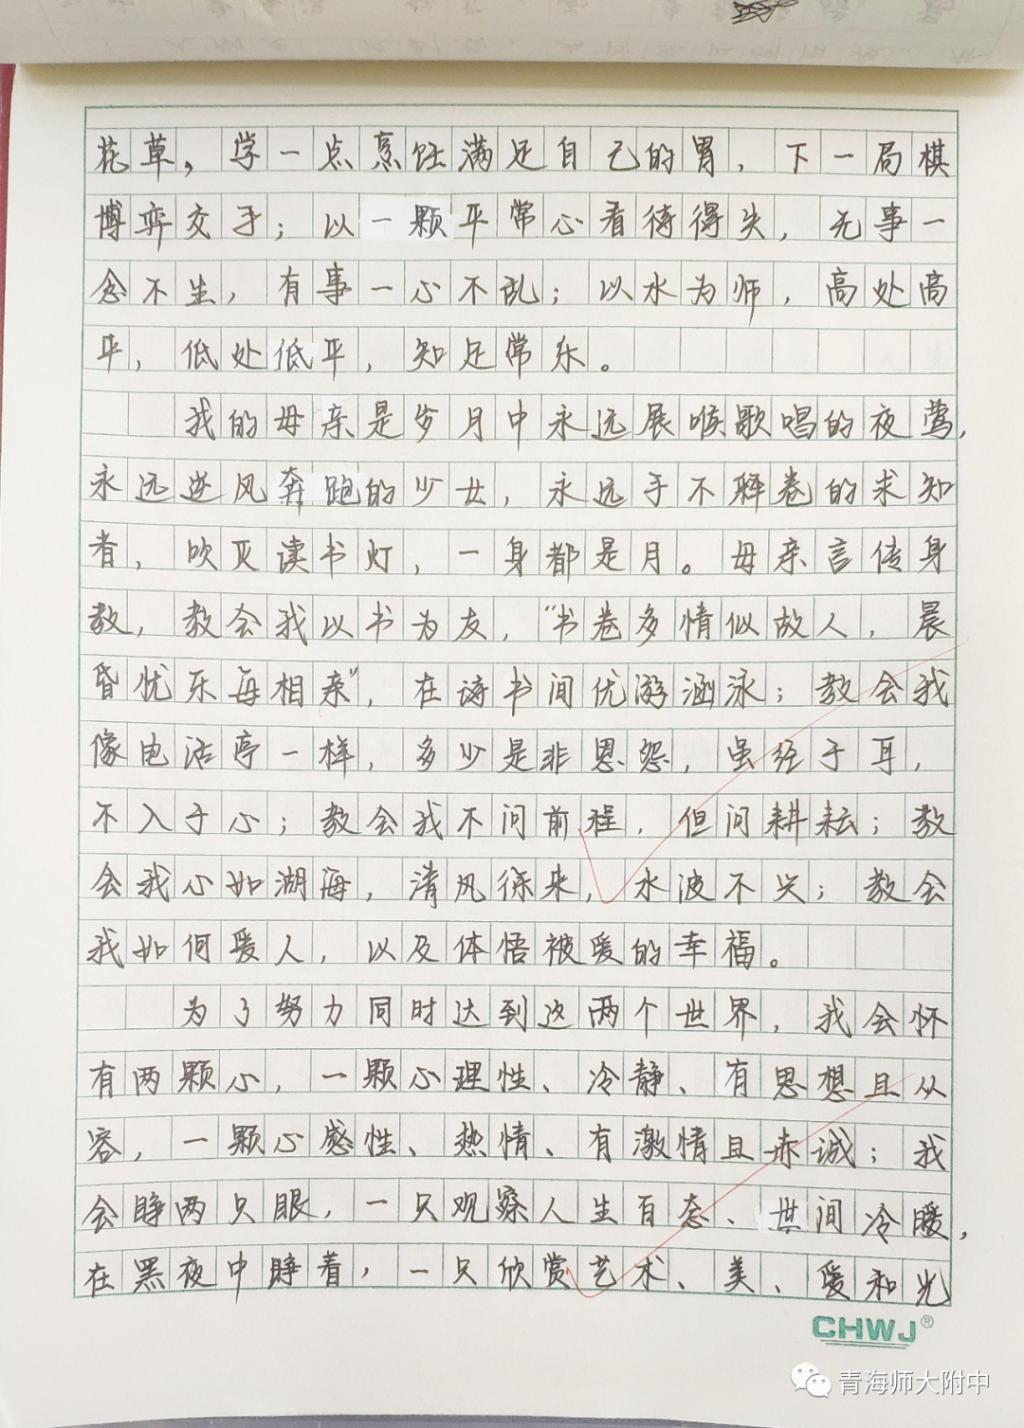 花草，学一点烹饪满足自己的胃，下一局棋
博弈交手；以一颗平常心看待得失，无事一
念不生，有事一心不乱；以水为师，高处高
平，低处低平，知足常乐。
我的母亲是岁月中永远展喉歌唱的夜莺，
永远逆风奔跑的少女，永远手不释卷的求知
者，吹灭读书灯，一身都是月。母亲言传身
教，教会我以书为友，“书卷多情似故人，晨
昏忧乐每相亲”，在诗书间优游涵泳；教会我
像电话亭一样，多少是非恩怨，虽经于耳，
不入于心；教会我不问前程，但问耕耘；教
会我心如湖海，清风徐来，水波不兴；教会
我如何爱人，以及体悟被爱的幸福。
为了努力同时达到这两个世界，我会怀
有两颗心，一颗心理性、冷静、有思想且从
容，一颗心感性、热情、有激情且赤诚；我
会睁两只眼，一只观察人生百态、世间冷暖，
在黑夜中睁着，一只欣赏艺术、美、爱和光
CHWJ®
青海师大附中